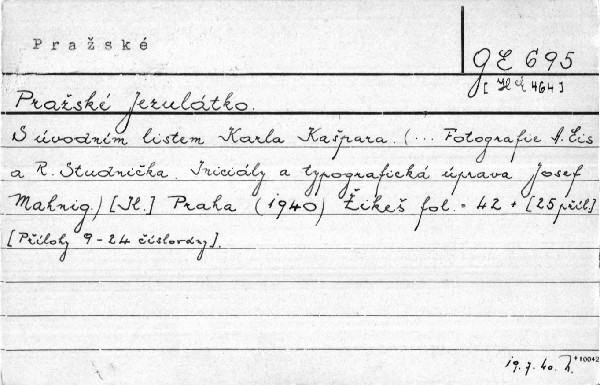 Pražské
GE 695
[Hd 464]
Pražské Jezulátko.
S úvodním listem Karla Kašpara. (... Fotografie A. Eis
a R. Studnička. Iniciály a typografická úprava Josef
Mahnig.) [Il.] Praha (1940) Žikeš fol. = 42 + [25 příl.]
[Přílohy 9-24 číslovány].
19.7.40.
+10042